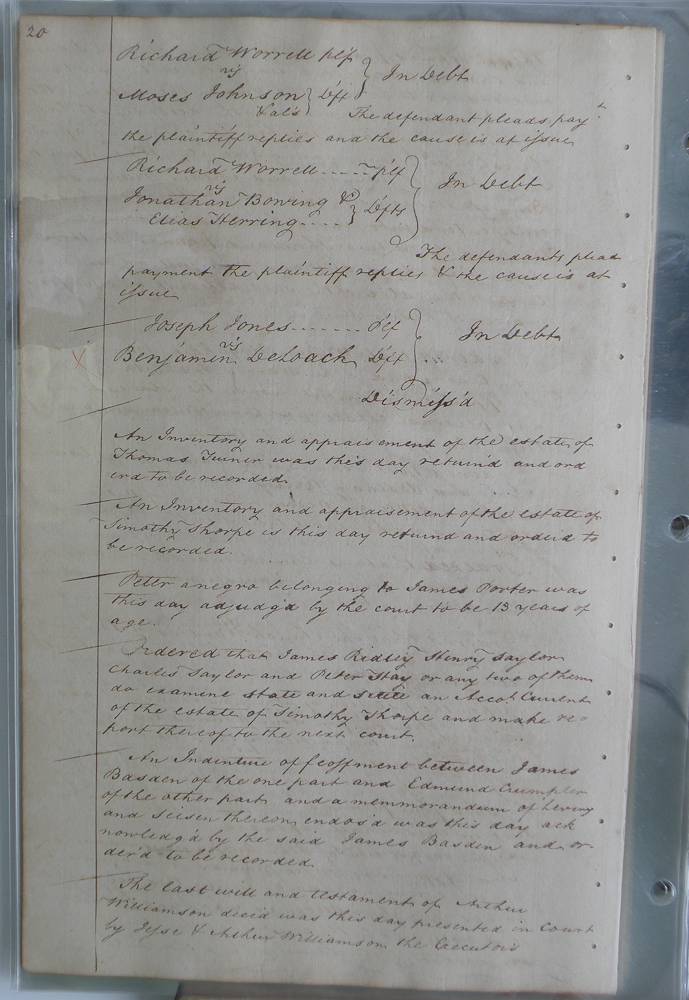 20
Richard Worrell plf
vs } In Debt
Moses Johnson } Dft
& al's The defendant pleads paymt
the plaintiff replies and the cause is at issue
Richard Worrell plf
vs } In Debt
Jonathan Bowing & } Dfts
Elias Herring
The defendants plead
payment the plaintiff replies & the cause is at
issue
Joseph Jones plf
vs } In Debt
X Benjamin DeLoach Dft
Dismiss'd
An Inventory and appraisement of the estate of
Thomas Turner was this day return'd and ord
erd to be recorded.
An Inventory and appraisement of the estate of
Timothy Thorpe is this day returnd and orderd to
be recorded.
Peter a negro belonging to James Porter was
this day adjudg'd by the court to be 13 years of
age.
Ordered that James Ridley Henry Taylor
Charles Taylor and Peter Hay or any two of them
do examine state and settle an Accot. Current
of the estate of Timothy Thorpe and make re=
port thereof to the next court.
An Indenture of feoffment between James
Basden of the one part and Edmund Crumpler
of the other part and a memmorandum of Livery
and Seisen thereon endos'd was this day ack
nowledg'd by the said James Basden and or
der'd to be recorded
The last will and testament of Arthur
Williamson deced was this day presented in Court
by Jesse & Arthur Williamson the Executors